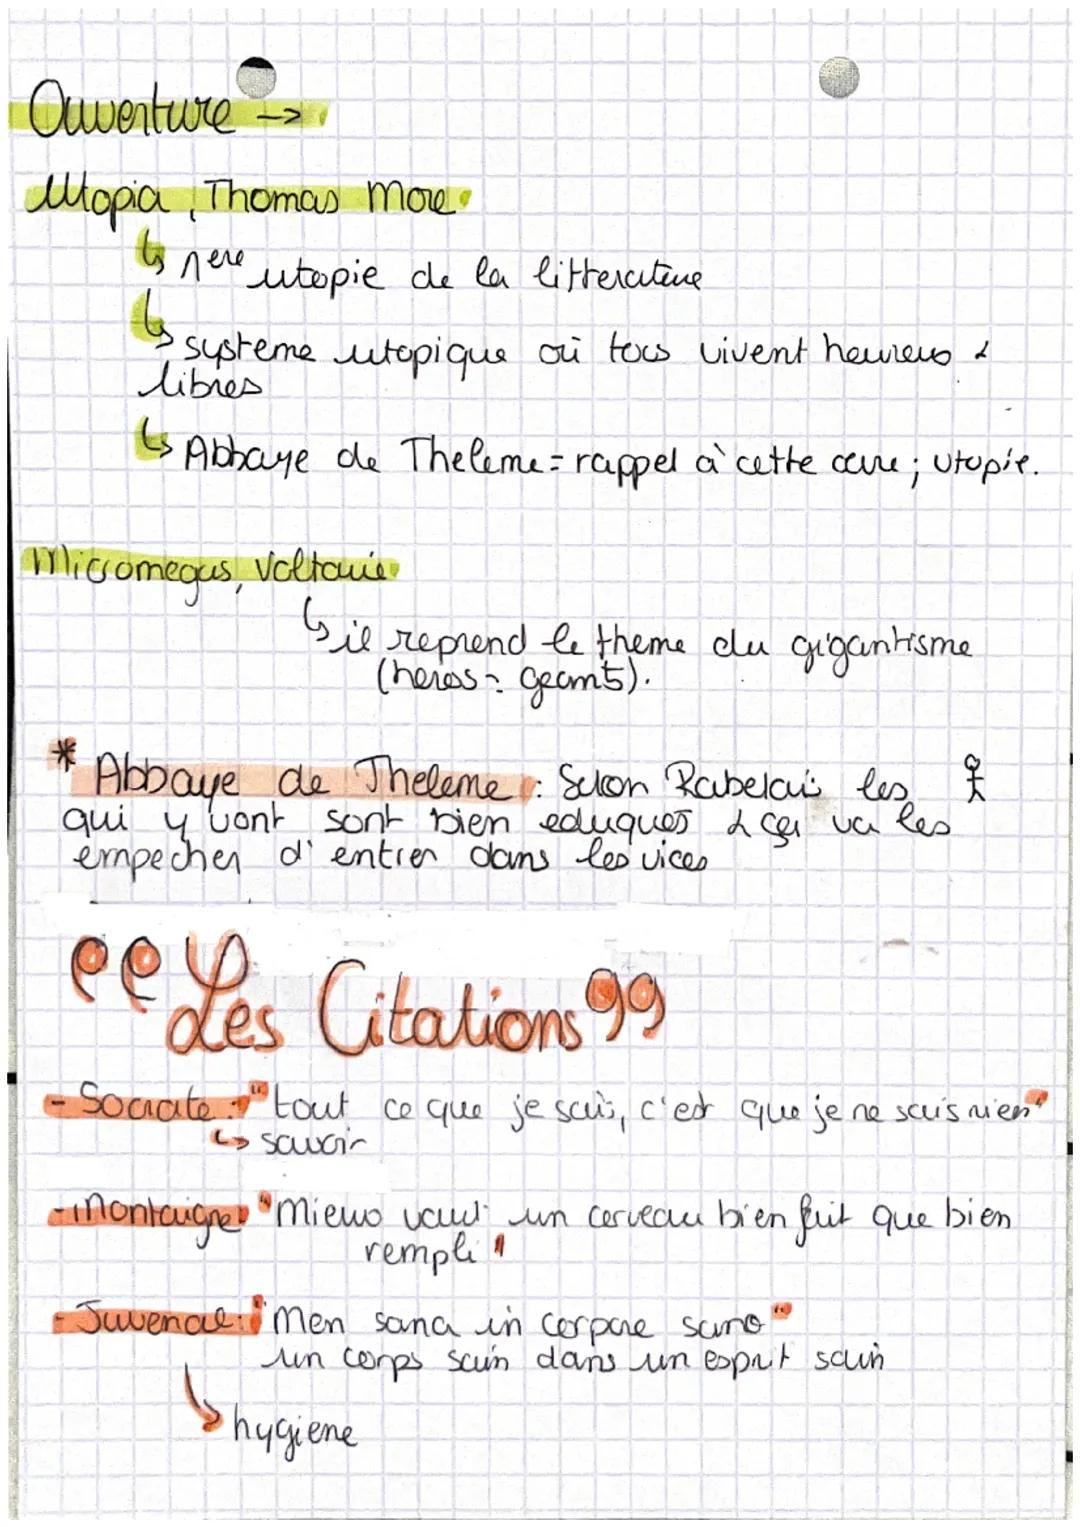 Ouverture ->
Utopia, Thomas More
↳ 1ere utopie de la litterature
↳ systeme utopique où tous vivent heureux &
libres
↳ Abbaye de Theleme = rappel à cette œuvre ; utopie.
Micromegas, Voltaire
↳ il reprend le theme du gigantisme
(heros = geants).
* Abbaye de Theleme : Selon Rabelais les
qui y vont sont bien eduques & ça va les
empecher d'entrer dans les vices
" Les Citations "
- Socrate : "tout ce que je sais, c'est que je ne sais rien"
↳ savoir
- Montaigne : "Mieux vaut un cerveau bien fait que bien
rempli"
- Juvenal : "Men sana in corpore sano"
un corps sain dans un esprit sain
↳ hygiene